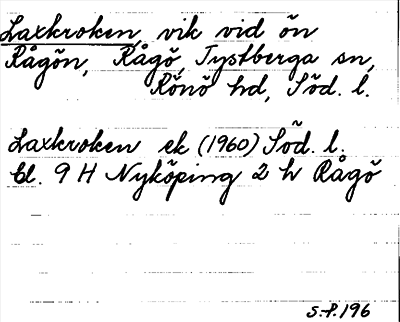 Laxkroken, vik vid ön
Rågön, Rågö, Tystberga sn,
Rönö hd, Söd. l.
Laxkroken ek (1960) Söd. l.
bl. 9 H Nyköping 2 h Rågö
S.P. 196